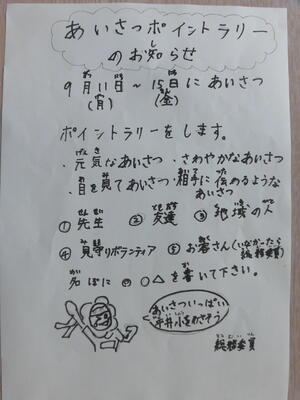 あいさつポイントラリー
のお知らせ
9月11日～15日にあいさつ
(月) (金)
ポイントラリーをします。
・元気なあいさつ ・さわやかなあいさつ
・目を見てあいさつ ・相手に伝わるような
あいさつ
①先生 ②友達 ③地域の人
④見守りボランティア ⑤お客さん(いなかったら
総務委員)
名ぼに ◎ ○ △ を書いて下さい。
あいさついっぱい
平井小をめざそう
総務委員